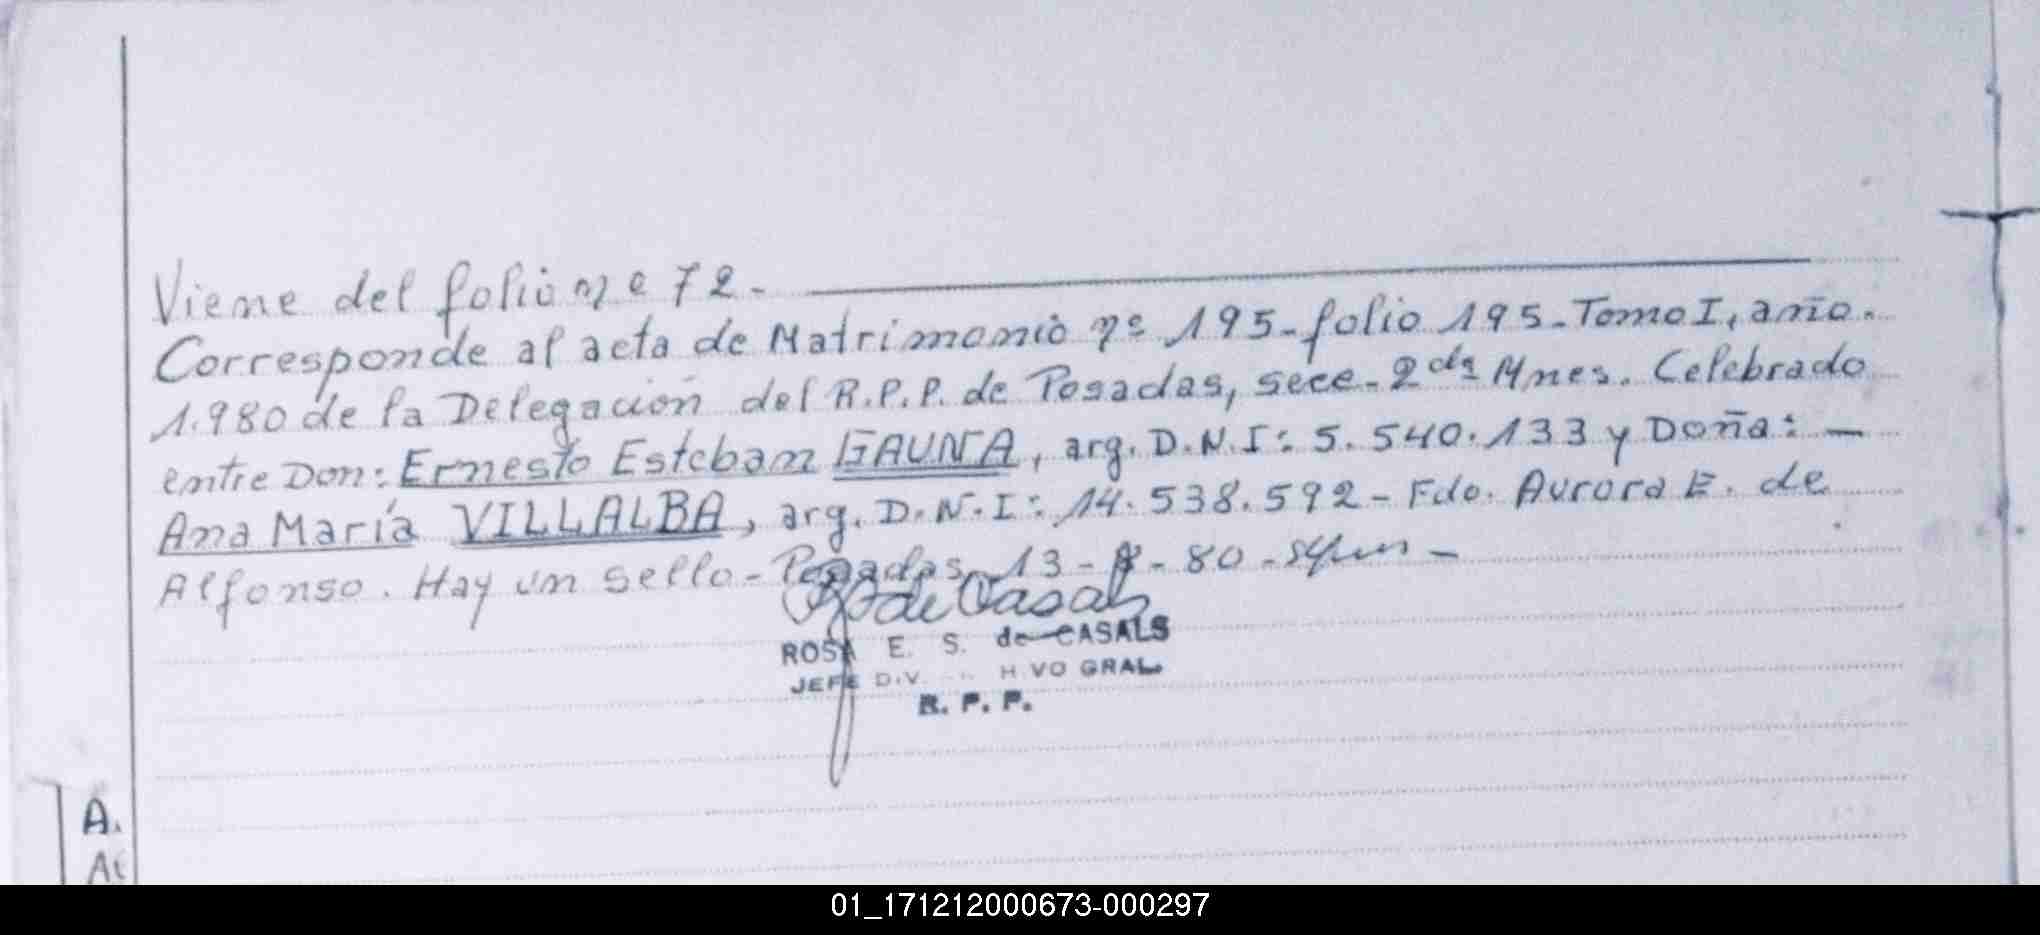 Viene del folio nº 72.-
Corresponde al acta de Matrimonio nº 195-folio 195-Tomo I, año.
1.980 de la Delegación del R.P.P. de Posadas, secc-2da Mnes. Celebrado
entre Don: Ernesto Esteban GAUNA, arg. D.N.I: 5.540.133 y Doña: -
Ana María VILLALBA, arg. D.N.I: 14.538.592- Fdo. Aurora E. de
Alfonso. Hay un sello- Posadas, 13-8-80-
de Casals
ROSA E. S. de CASALS
JEFE DIV. GRAL.
R. P. P.
A.
01_171212000673-000297